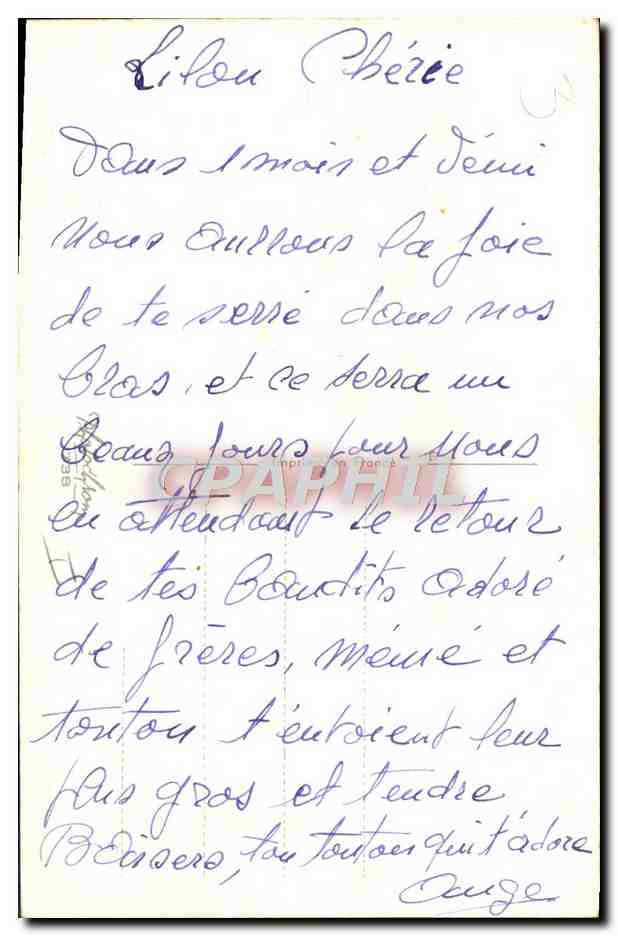 Lilou Chérie
3
Dans 1 mois et demi
nous aurrons la joie
de te serré dans nos
bras, et ce serra un
beaux jours pour nous
Imprimé en France
CPAPHIL
en attendant le retour
de tes bandits adoré
de frères, mémé et
tonton t'envoient leur
plus gros et tendre
Baisers, ton tonton qui t'adore
Ange